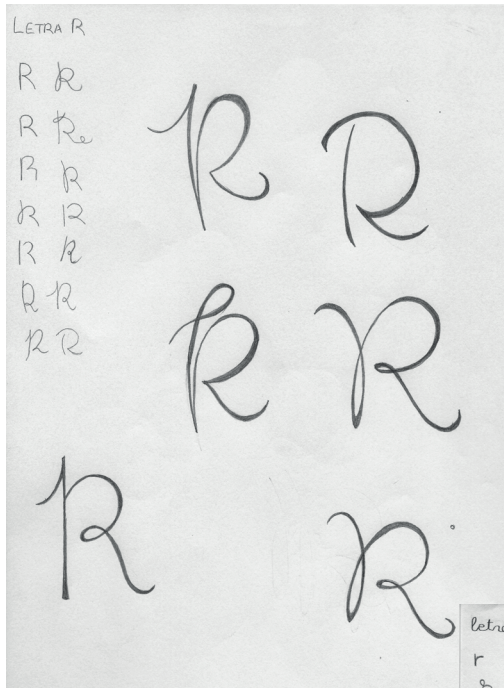 LETRA R
R R
R R
R R
R R
R R
R R
R R
R R
R R
R R
r